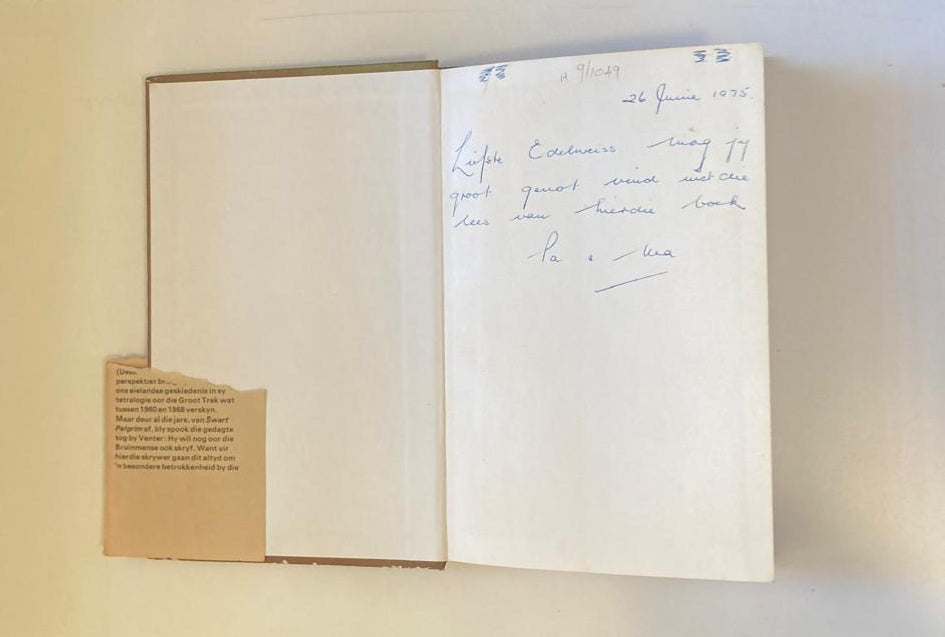 perspektief
ons eielandse geskiedenis in sy
tetralogie oor die Groot Trek wat
tussen 1960 en 1968 verskyn.
Maar deur al die jare, van Swart
Pelgrim af, bly spook die gedagte
tog by Venter: Hy wil nog oor die
Bruinmense ook skryf. Want vir
hierdie skrywer gaan dit altyd om
'n besondere betrokkenheid by die
H 9/1049
26 Junie 1975.
Liefste Edelweiss mag jy
groot genot vind met die
lees van hierdie boek
Pa & Ma